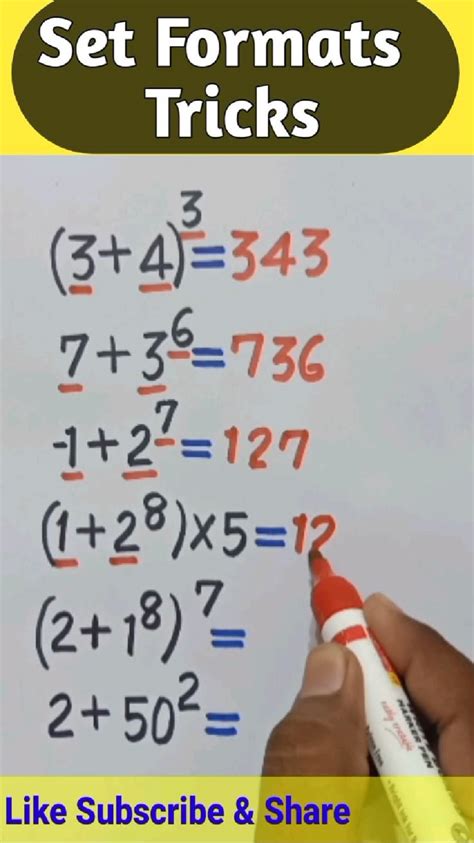 Set Formats
Tricks
(3+4)³=343
7+3⁶=736
-1+2⁷=127
(1+2⁸)×5=12
(2+1⁸)⁷=
2+50²=
MARKER PEN
Like Subscribe & Share